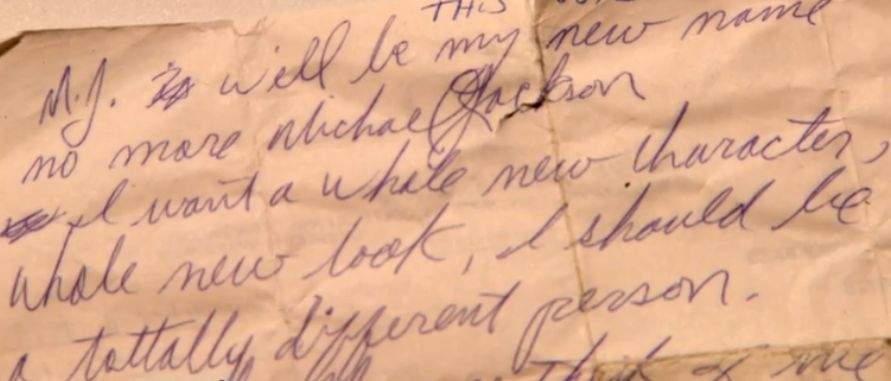 THIS
M.J. will be my new name
no more Michael Jackson
I want a whole new character,
whole new look, I should be
a tottally different person.
think of me